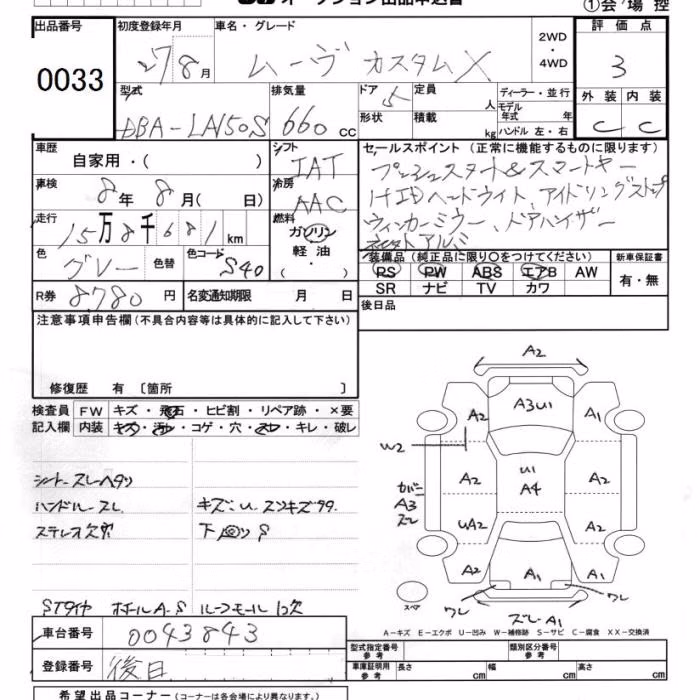 オークション出品申込書
①会場控
出品番号
0033
初度登録年月
27 8月
車名・グレード
ムーヴ カスタムX
2WD・4WD
評価点
3
外装 内装
C C
型式
DBA-LA150S
排気量
660 cc
ドア 5
形状
定員 人
積載 kg
ディーラー・並行
モデル年式 年
ハンドル 左・右
車歴
自家用・( )
シフト
IAT
車検
8年 8月( 日)
冷房
AAC
走行
15万8千681km
燃料
ガソリン
軽油
・
色
グレー
色替
色コード
S40
R券
8780円
名変通知期限 月 日
セールスポイント(正常に機能するものに限ります)
プッシュスタート&スマートキー
HIDヘッドライト、アイドリングストップ
ウィンカーミラー、ドアバイザー
アルミ
装備品(純正品に限り○をつけてください)
PS PW ABS エアB AW
SR ナビ TV カワ
新車保証書
有・無
後日品
注意事項申告欄(不具合内容等は具体的に記入して下さい)
修復歴 有〔箇所 〕
検査員記入欄
FW キズ・飛石・ヒビ割・リペア跡・×要
内装 キズ・汚れ・コゲ・穴・スレ・キレ・破レ
シートスレヘタリ
ハンドルスレ
ステレオ欠
キズ:U スリキズ
下 S
STタイヤ ホイールA・S ルーフモール 欠
A2
A3U1
A2
A1
W2
カバーA3スレ
A2
U1
A4
A2
UA2
A2
A2
A1
A2
ワレ
ワレ
スレA1
スペア
A-キズ E-エクボ U-凹み W-補修跡 S-サビ C-腐食 XX-交換済
車台番号
0043843
登録番号
後日
型式指定番号 参考
類別区分番号 参考
車庫証明用参考
長さ cm
幅 cm
高さ cm
希望出品コーナー(コーナーは各会場により異なります。)